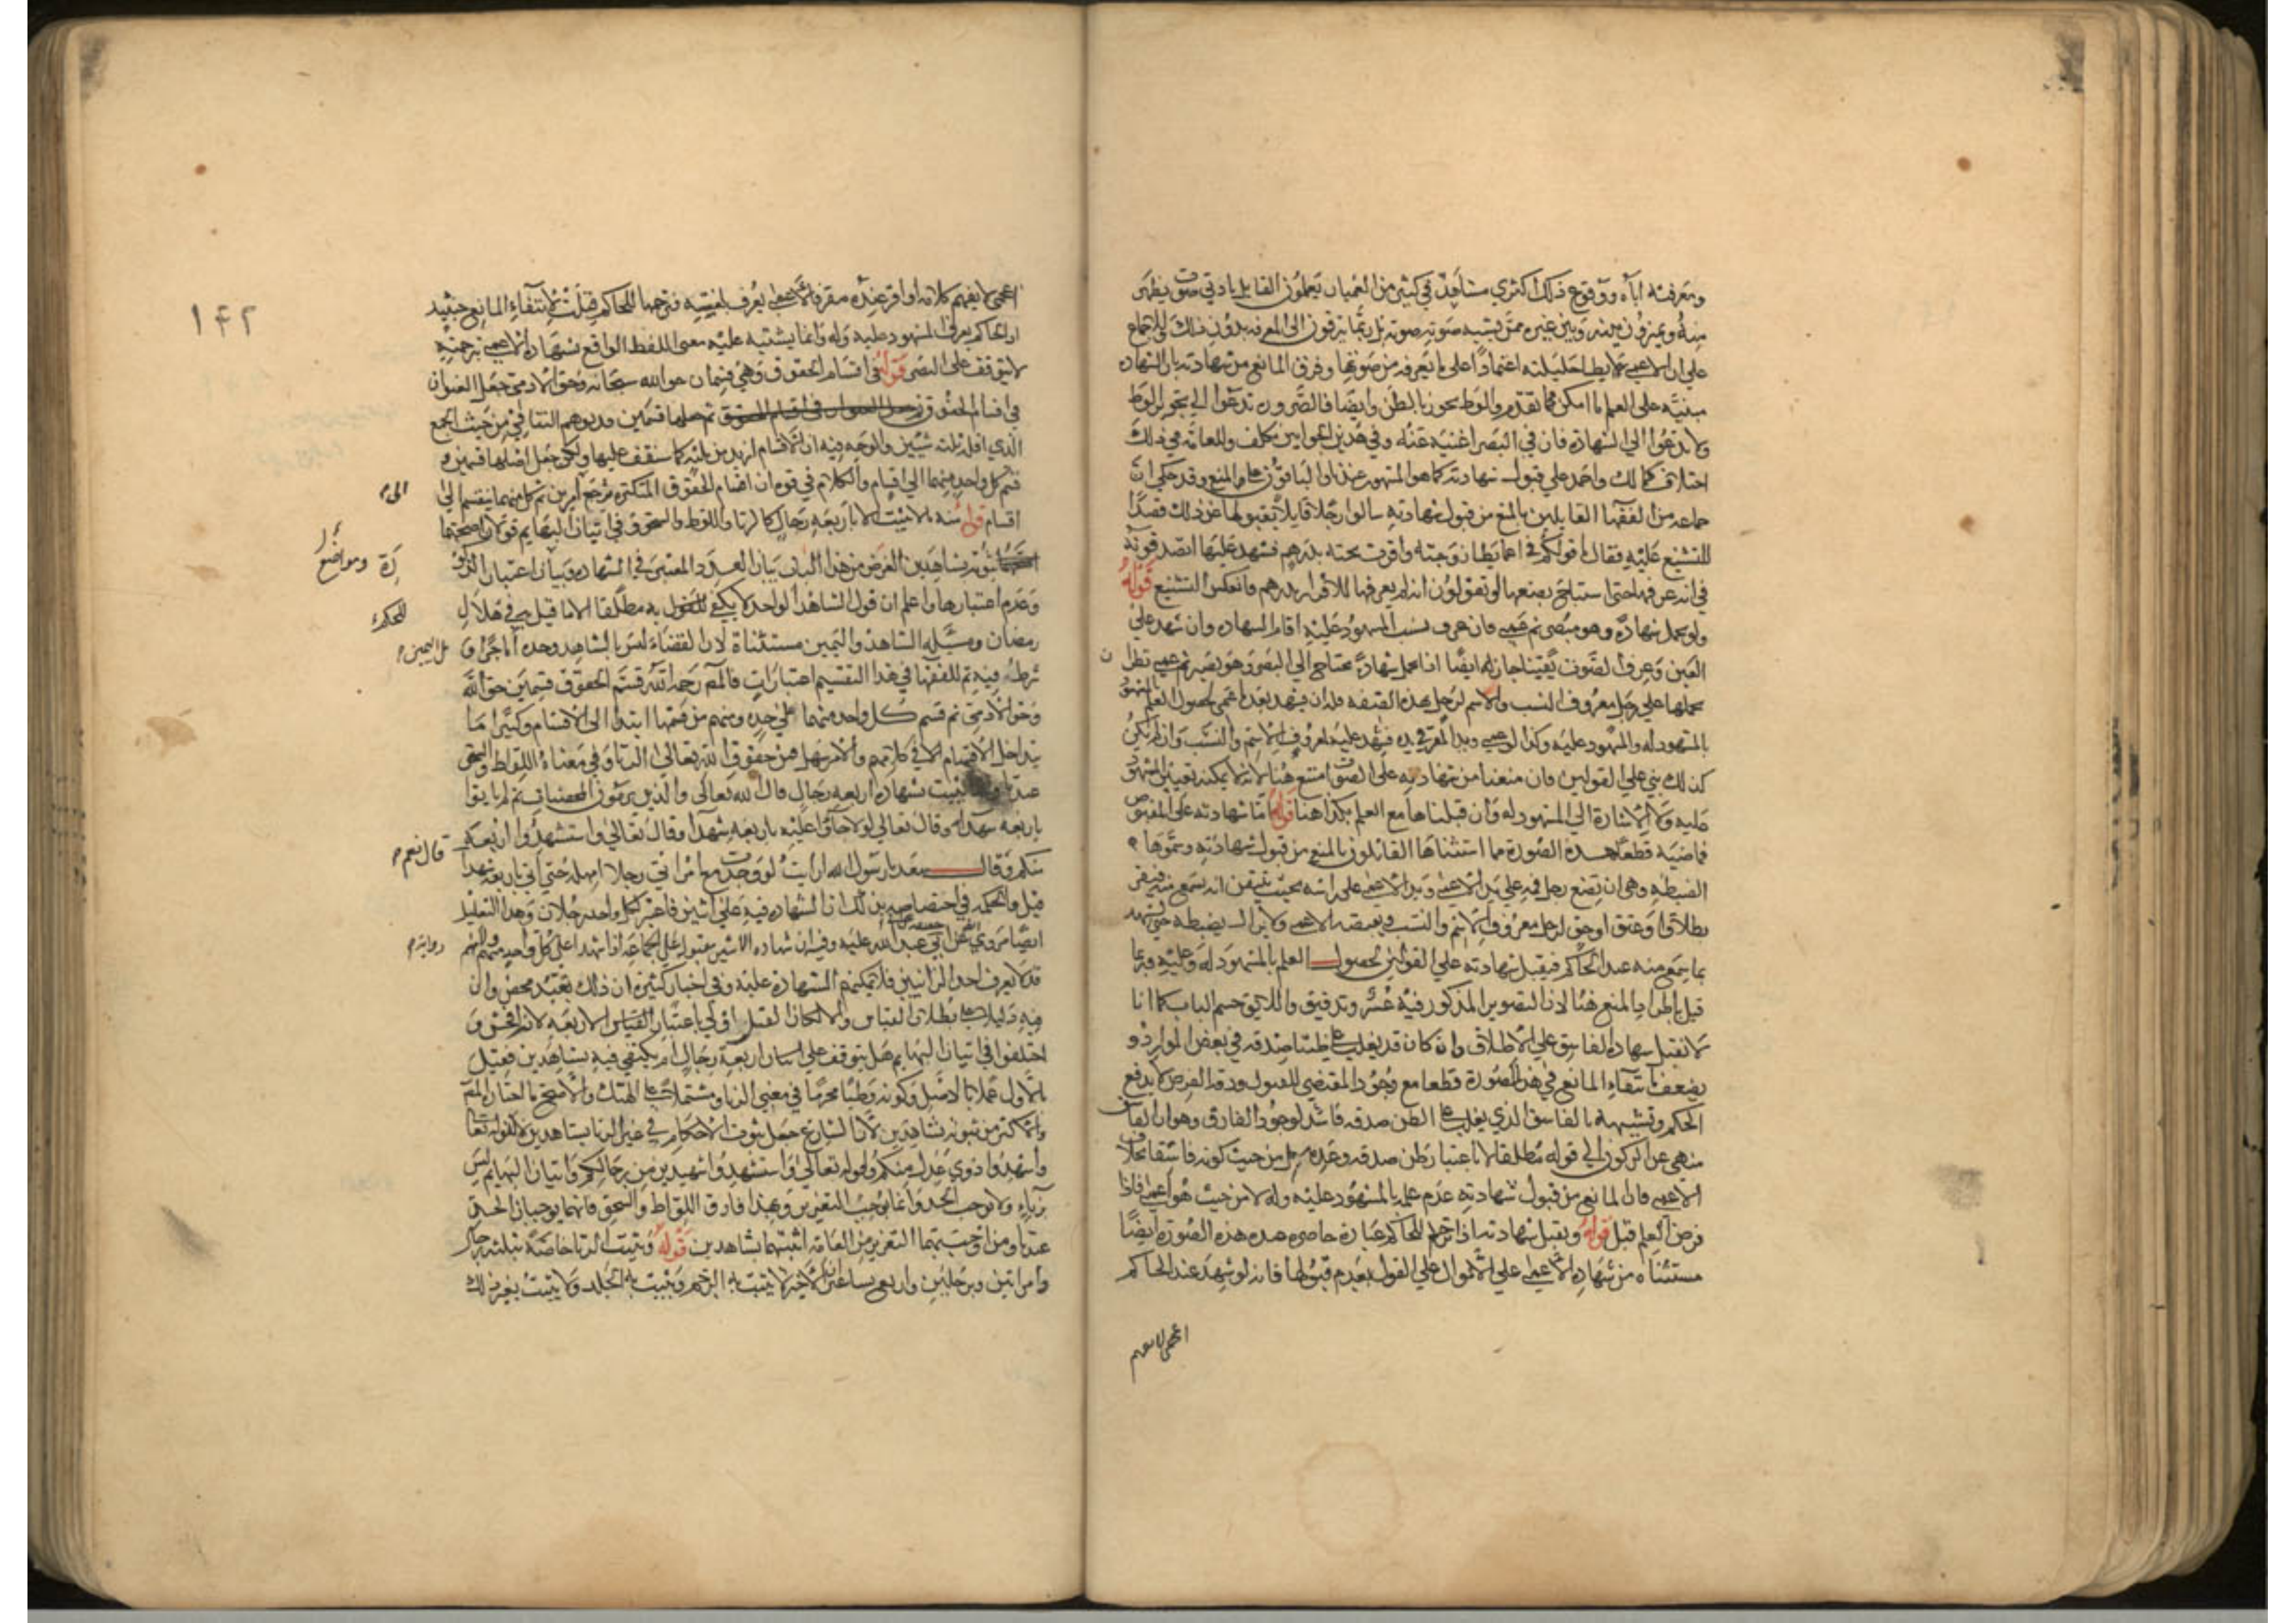 وبمعرفته اياه ووقوع ذلك اكثري مشاهد في كثير من العميان يعلمون القايل بادني صوت يظهر
منه ويميزون بينه وبين غيره ممن يشتبه صوته بصوته بل ربما يترقون الي المعرفه بدون ذلك وللاجماع
علي ان للاعمي ان يطا حليلته اعتمادا علي ما يعرفه من صوتها وفرق المانع من شهادته بان الشهاده
مبنيه علي العلم ما امكن لما تقدم والوطي يجوز بالظن وايضا فالضرورة تدعوا الي تجويز الوطي
ولا تدعوا الي الشهادة فان في البصرا غنيه عنه وفي هذين الجوابين تكلف وللعامه في ذلك
اختلاف فمالك واحمد علي قبول شهادته كما هو المشهور عندنا والباقون علي المنع وقد حكي ان
جماعه من الفقها القايلين بالمنع من قبول شهادته سالوا رجلا قايلا بقبولها عن ذلك قصدا
للتشنيع عليه فقال ما قولكم في اعمي يطا زوجته واقرت تحته بدرهم فشهد عليها اتصدقونه
في انه عرفها حتي استباح بضعها او تقولون انه لم يعرفها للاقرار بدرهم فانعكس التشنيع قوله
ولو تحمل شهادة وهو مبصر ثم عمي فان عرف نسب المشهود عليه اقام الشهاده وان شهد علي
العين وعرف الصوت يقينا جاز له ايضا اذا تحمل شهادة يحتاج الي البصر وهو بصير ثم عمي نظر ان
تحملها علي رجل معروف النسب والاسم لرجل بهذه الصفه فله ان يشهد بعد ما عمي لحصول العلم
بالمشهود له والمشهود عليه وكذا لو عمي ويد المقر في يده فشهد عليه لمعروف الاسم والنسب وان لم يكن
كذلك بني علي القولين فان منعنا من شهادته علي الصوت امتنع هنا لانه لا يمكنه تعيين المشهود
عليه ولا الاشارة الي المشهود له وان قبلناها مع العلم فكذا هنا قوله اما شهادته علي المقبوض
فماضيه قطعا هذه الصورة مما استثناها القائلون بالمنع من قبول شهادته وسموها
الضبطه وهي ان يضع رجل فمه علي يد الاعمي ويد الاعمي علي راسه بحيث يتيقن انه يسمع منه فيقر
بطلاق او عتق او حق لرجل معروف الاسم والنسب ويقبضه الاعمي ولا يزال يضبطه حتي يشهد
بما سمع منه عند الحاكم فيقبل شهادته علي القولين لحصول العلم بالمشهود له وعليه وربما
قيل باطراد المنع هنا لان التصوير المذكور فيه عسر وتدقيق واللايق حسم الباب كما انا
لا نقبل شهادة الفاسق علي الاطلاق وان كان قد يغلب علي ظننا صدقه في بعض الموارد و
يضعف بانتفاء المانع في هذه الصورة قطعا مع وجود المقتضي للقبول ودقة الفرض لا يدفع
الحكم وتشبيهه بالفاسق الذي يغلب علي الظن صدقه فاسد لوجود الفارق وهو ان الفاسق
منهي عن الركون الي قوله مطلقا لا باعتبار ظن صدقه وعدمه بل من حيث كونه فاسقا بخلاف
الاعمي فان المانع من قبول شهادته عدم علمه بالمشهود عليه وله لا من حيث هو اعمي فاذا
فرض العلم قبل قوله ويقبل شهادته اذا ترجم للحاكم عبارة حاضر عنده هذه الصورة ايضا
مستثناه من شهادة الاعمي علي الاقوال علي القول بعدم قبولها فانه لو شهد عند الحاكم
اعجمي لا يفهم
١٤٢
اعجمي لا يفهم كلامه او اقر عنده مقر فالاعمي يعرف لغته فترجمها للحاكم قبلت لانتفاء المانع حينيذ
اذ الحاكم يعرف المشهود عليه وله وانما يشتبه عليه معني اللفظ الواقع فشهادة الاعمي بترجمته
لا يتوقف علي البصر قوله في اقسام الحقوق وهي قسمان حق الله سبحانه وحق الادمي جعل العنوان
في اقسام الحقوق ثم جعلها قسمين وقد يوهم التنافي من حيث الجمع
الذي اقله ثلثه شيين والوجه فيه ان الاقسام ازيد من ثلثه كما ستقف عليها ولكن جعل اصلها قسمين و
قسم كل واحد منهما الي اقسام والكلام في قوه ان اقسام الحقوق المتكثرة يرجع الي امرين ثم كل منهما ينقسم الي
اقسام قوله منه ما لا يثبت الا باربعه رجال كالزنا واللواط والسحق وفي اتيان البهايم قولان اصحهما
ثبوته بشاهدين الغرض من هذا الباب بيان العدد المعتبر في الشهاده وبيان اعتبار الذكورة ومواضع
وعدم اعتبارها واعلم ان قول الشاهد الواحد لا يكفي للحكم به مطلقا الا ما قيل به في هلال
رمضان ومسئلة الشاهد واليمين مستثناة لان القضاء ليس بالشاهد وحده
فيه ثم للفقها في هذا التقسيم اعتبارات فالمص رحمه الله قسم الحقوق قسمين حق الله
وحق الادمي ثم قسم كل واحد منهما علي حده ومنهم من قسمها ابتدا الي الاقسام وكثيرا ما
يتداخل الاقسام في كلامهم والامر سهل فمن حقوق الله تعالي الزنا وفي معناه اللواط والسحق
عندنا ويثبت بشهادة اربعه رجال قال الله تعالي والذين يرمون المحصنات ثم لم ياتوا
باربعه شهدا وقال تعالي لولا جاؤا عليه باربعه شهدا وقال تعالي واستشهدوا اربعه
منكم وقال سعد يا رسول الله ارايت لو وجدت مع امراتي رجلا امهله حتي آتي باربعه شهدا قال نعم
قيل والحكمه في اختصاصه بذلك ان الشهاده فيه علي اثنين فاعتبر لكل واحد رجلان وهذا التعليل
ايضا مروي عن ابي عبد الله عليه وفيه ان شهاده الاثنين مقبولة علي الجماعه اذا شهدا علي كل واحد منهم
قد لا يعرف احد الزانيين فلا يمكنهم الشهادة عليه وفي اخبار كثيره ان ذلك تعبد محض وان
فيه دليلا علي بطلان القياس والا لكان القتل اولي باعتبار الاربعه لانه افحش و
اختلفوا في اتيان البهايم هل يتوقف علي اربعة رجال ام يكتفي فيه بشاهدين فقيل
بالاول عملا بالاصل وكونه وطيا محرما في معني الزنا ومشتملا علي الهتك والاصح ما اختاره المص
والاكثر من ثبوته بشاهدين لان الشارع جعل ثبوت الاحكام في غير الزنا بشاهدين لقوله تعالي
واشهدوا ذوي عدل منكم ولقوله تعالي واستشهدوا شهيدين من رجالكم واتيان البهايم ليس
بزناء ولا يوجب الحد وانما يوجب التعزير وبهذا فارق اللواط والسحق فانهما يوجبان الحد
عندنا ومن اوجب بهما التعزير من العامه اثبتهما بشاهدين قوله ويثبت الزنا خاصه بثلثه رجال
وامراتين وبرجلين واربع نسا غير ان الاخير لا يثبت به الرجم ويثبت به الجلد ولا يثبت بغير ذلك